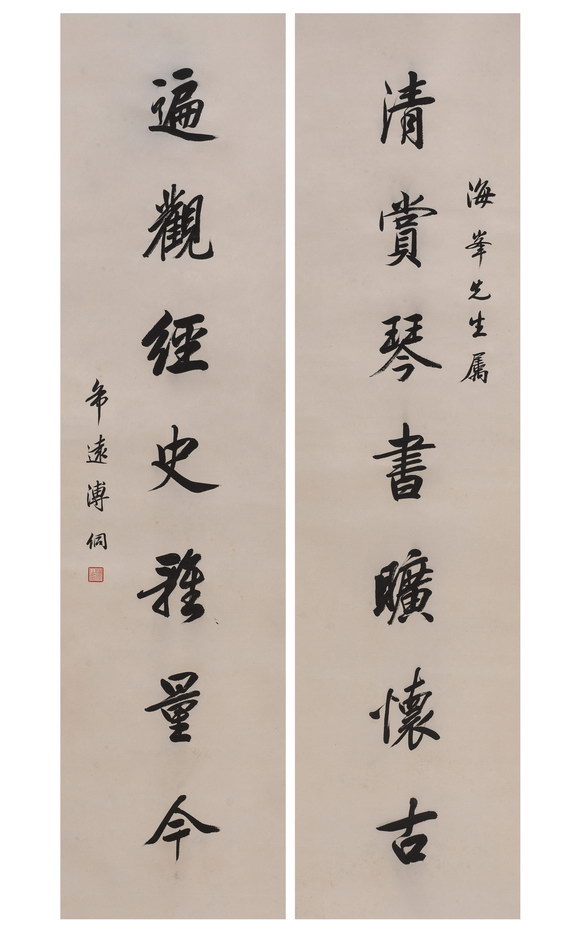 海峯先生属
清賞琴書曠懷古
遍觀經史雅量今
遠溥侗